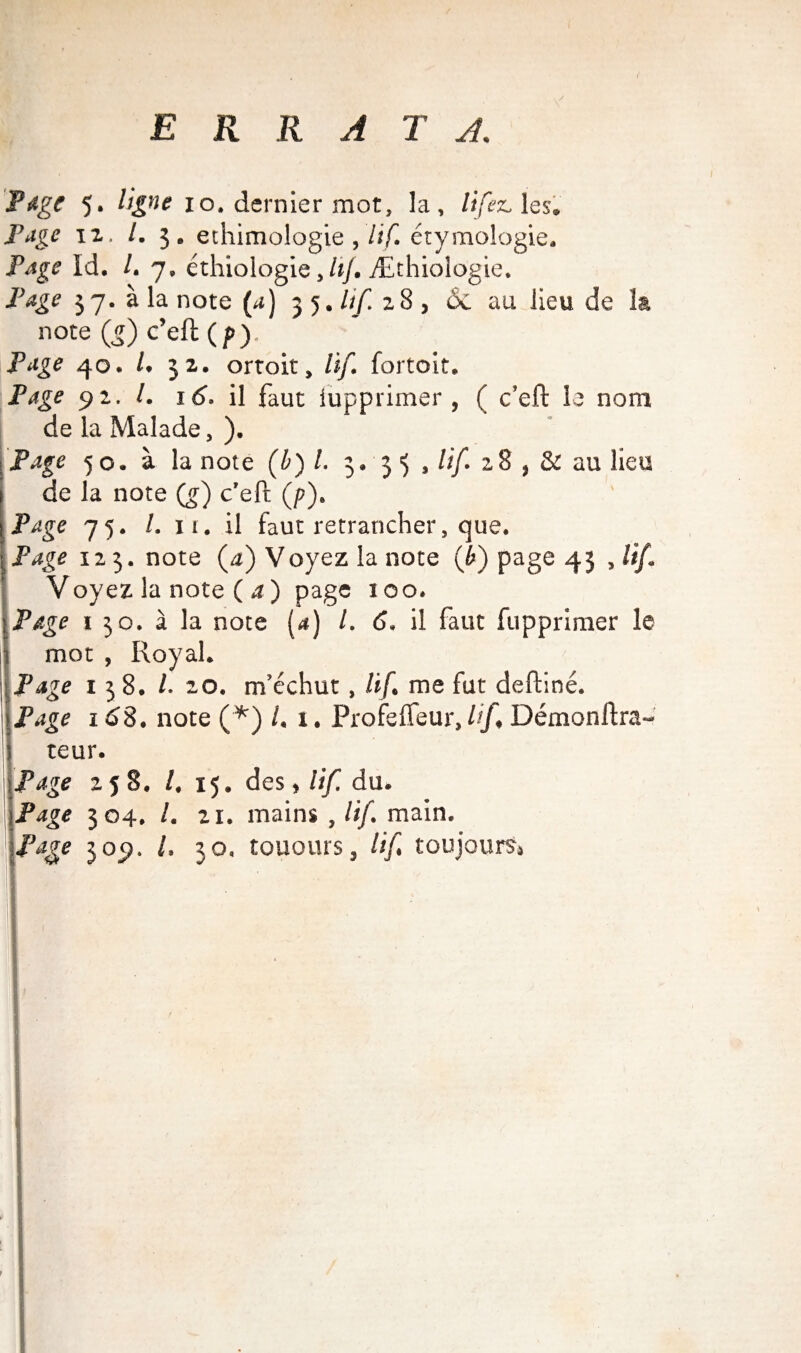 ERRATA.
Page 5. ligne 10. dernier mot, la, liſez les.
Page 12. l. 3. ethimologie, liſ. étymologie.
Page Id. l. 7. éthiologie, liſ. Æthiologie.
Page 37. à la note (a) 35. liſ. 28, & au lieu de la
note (g) c'eſt (p).
Page 40. l. 32. ortoit, liſ. ſortoit.
Page 92. l. 16. il faut ſupprimer, ( c'eſt le nom
de la Malade, ).
Page 50. à la note (b) l. 3. 35, liſ. 28, & au lieu
de la note (g) c'eſt (p).
Page 75. l. 11. il faut retrancher, que.
Page 123. note (a) Voyez la note (b) page 43, liſ.
Voyez la note (a) page 100.
Page 130. à la note (a) l. 6. il faut ſupprimer le
mot, Royal.
Page 138. l. 20. m'échut, liſ. me fut deſtiné.
Page 168. note (*) l. 1. Profeſſeur, liſ. Démonſtra-
teur.
Page 258. l. 15. des, liſ. du.
Page 304. l. 21. mains, liſ. main.
Page 309. l. 30. touours, liſ. toujours.